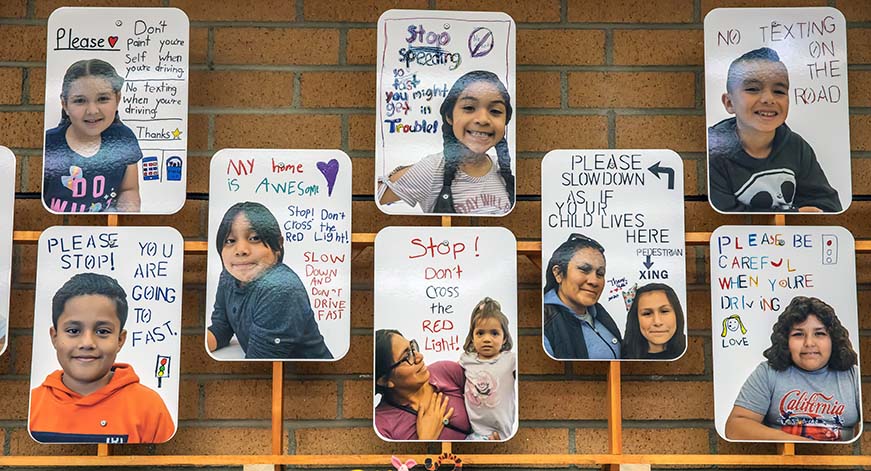 Please ♥
Don't
paint you're
self when
you're driving
No texting
when your're
driving.
Thanks
Stop
speeding
so fast
you might
get in
Trouble!
NO TEXTING
ON
THE
ROAD
PLEASE
STOP!
YOU
ARE
GOING
TO
FAST.
MY home
is AWESOME
STOP! DON'T
CROSS THE
RED LIGHT!
SLOW
DOWN AND
DON'T DRIVE
FAST
STOP!
DON'T
CROSS
THE
RED
LIGHT!
PLEASE
SLOWDOWN
AS IF
YOUR
CHILD LIVES
HERE
PEDESTRIAN
XING
PLEASE BE
CAREFUL
WHEN
YOU'RE
DRIVING
LOVE
California